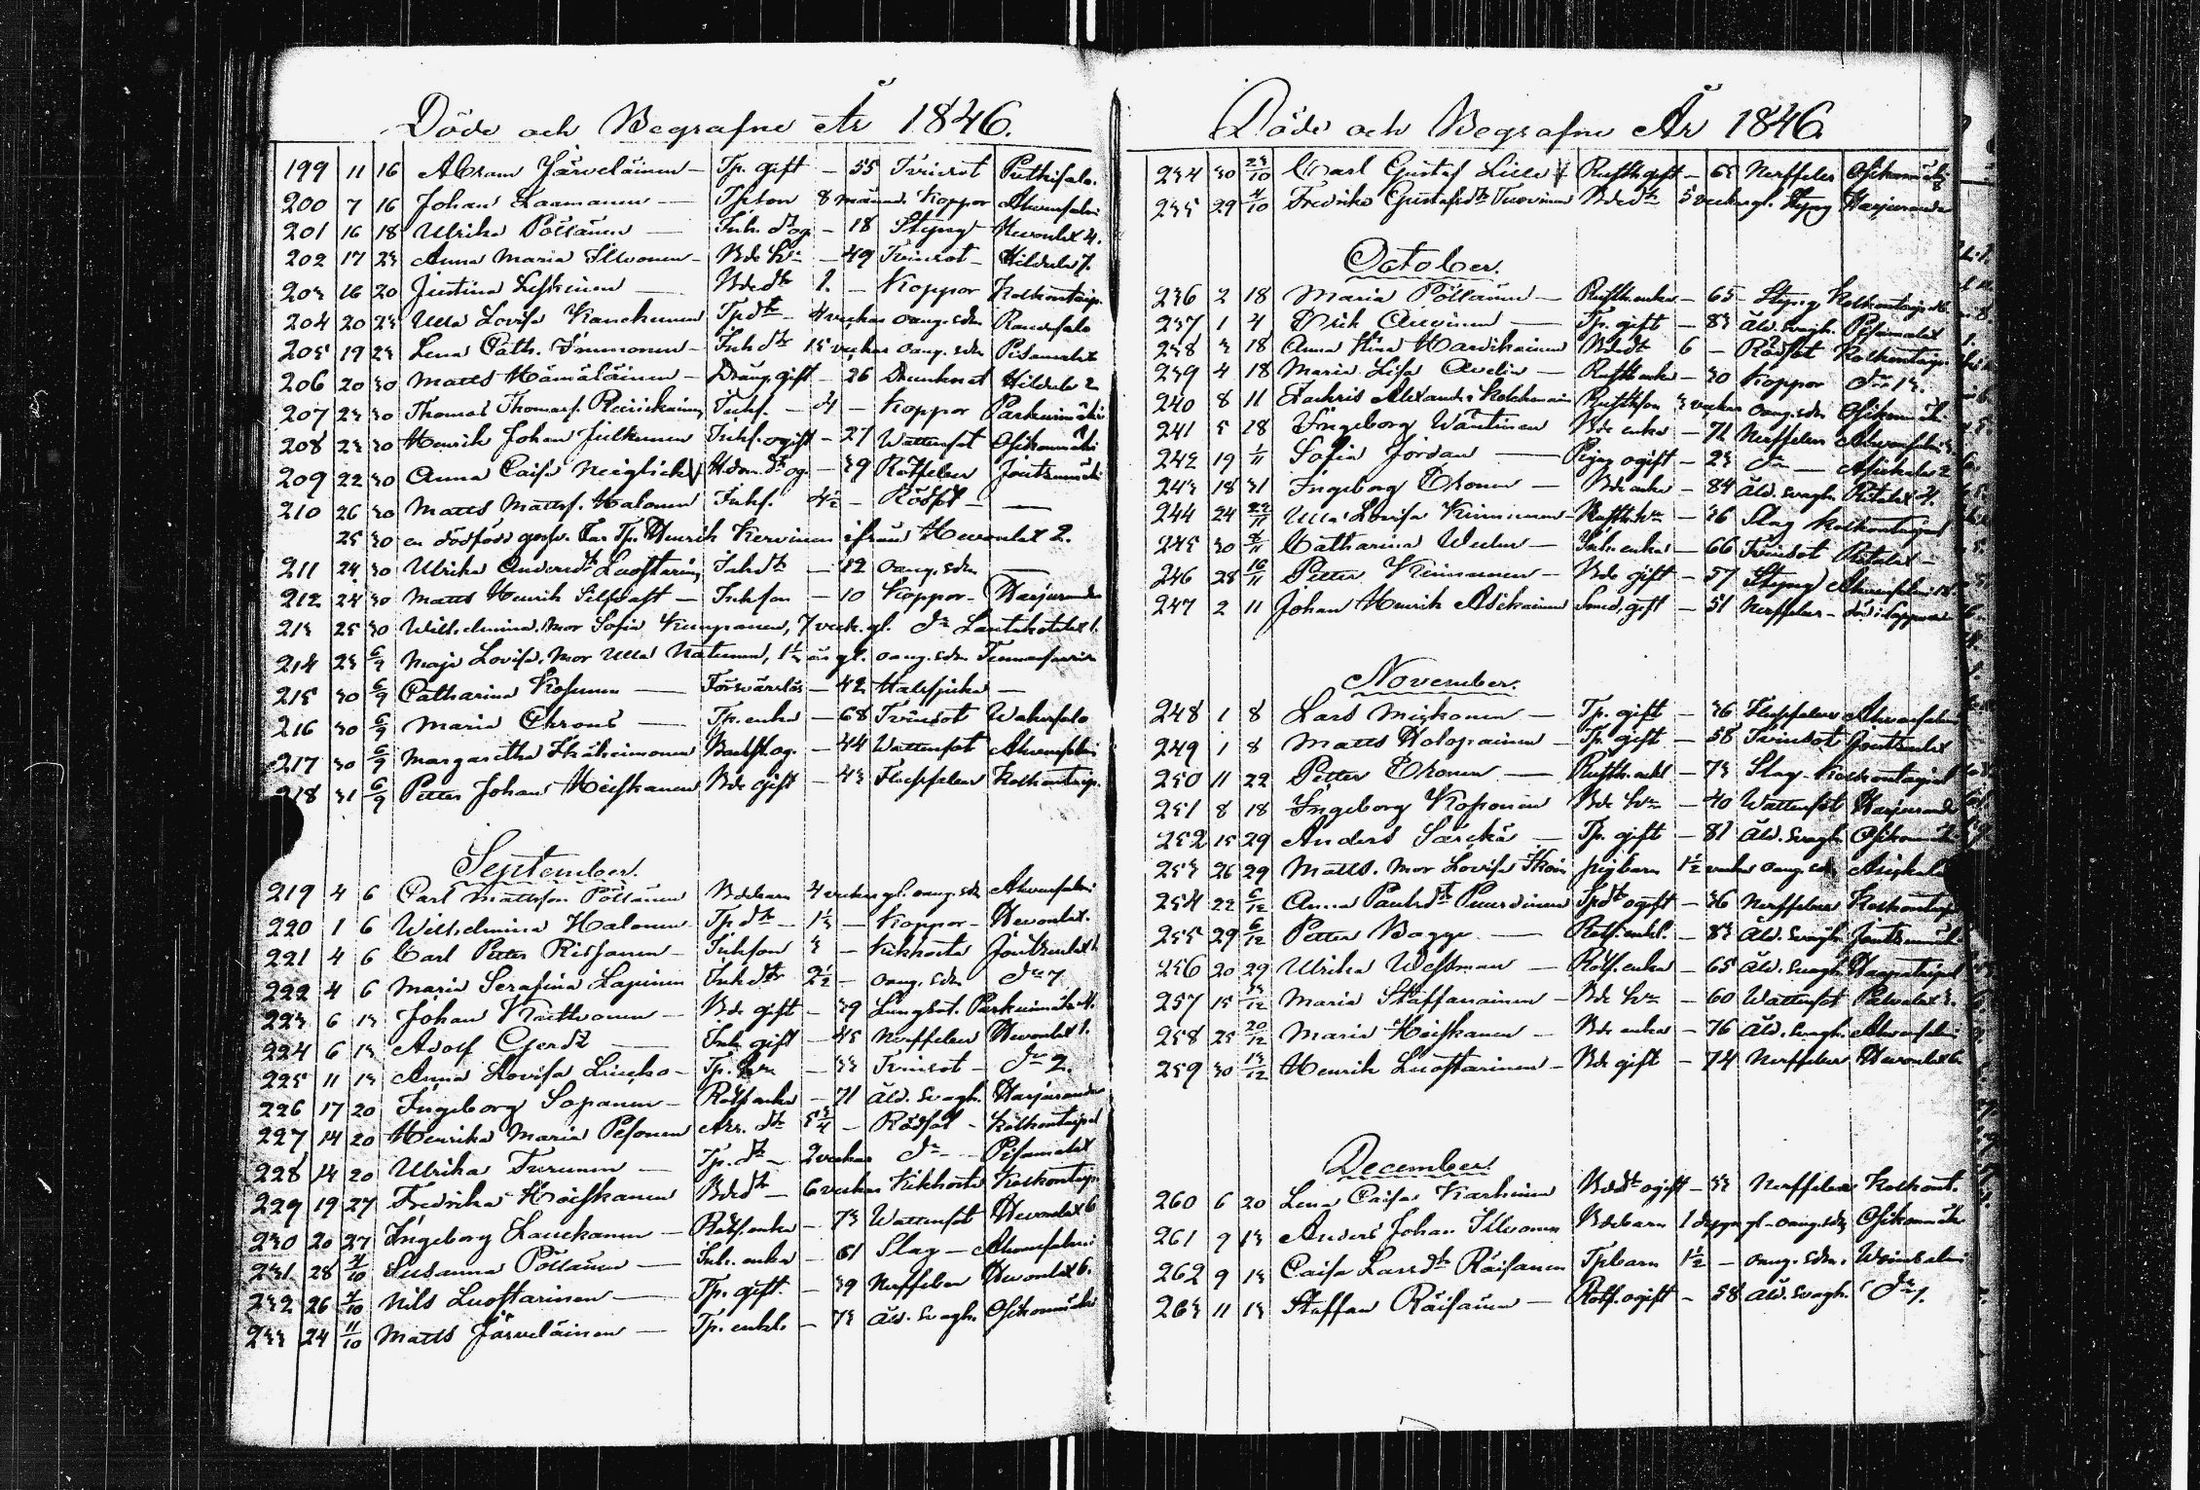 Döde och Begrafne År 1846.
199 11 16 Abram Järveläinen — Tp. gift — 55 Tvinsot Putkisalo.
200 7 16 Johan Laamanen — Tpson 8 månad. Koppor Ahvensalmi
201 16 18 Ulrika Pöllänen — Inh. dr og. — 18 Styng Hevonlax 4.
202 17 23 Anna Maria Ilvonen — Bde hu — 49 Tvinsot — Hildula 7.
203 16 20 Justina Leskinen — Bdedtr 1. — Koppor Kolkontaip.
204 20 23 Ulla Lovisa Kauchunen Tpdtr — 4 veckor oang. sdm Rauvsalo
205 19 23 Lena Cath. Immonen — Inhdtr 15 veckor oang. sdm Pisamalax
206 20 30 Matts Hämäläinen — Dräng gift — 26 Drunknat Hildula 2
207 23 30 Thomas Thomasf. Inhf. — 4 — Koppor Parkuinmäki
208 23 30 Henrik Johan Julkunen Inhf. ogift — 27 Wattensot Osikonmäki
209 22 30 Anna Caisa Neiglick Hdom. dr og. — 39 Rötfeber Joutsenmäki
210 26 30 Matts Mattsf. Halonen Inhf. 4½ — Rödsot — —
25 30 en dödfödd Tp. Henrik Kervinen ifrån Hevonlax 2.
211 24 30 Ulrika Andersdtr Luostarin. Inhdtr — 12 oang. sdm —
212 24 30 Matts Henrik Silfvast — Inhson — 10 Koppor — Harjuranda
213 25 30 Wilhelmina, Mor Sofia Kumpanen, 7 veck. gl. Do Lautakotalax 1.
214 23 6/9 Maja Lovisa, Mor Ulla Natunen, oang. sdm
215 30 6/9 Catharina Kosunen — Försvarslös — 42 Halssjuka —
216 30 6/9 Maria Ahrons — Tp. enka — 68 Tvinsot Wahersalo
217 30 6/9 Margaretha og. — 44 Wattensot Ahvensalmi
218 31 6/9 Petter Johan Heiskanen Bde gift — 43 Kolkontaip.
September.
219 4 6 Carl Mattsson Pöllänen Bdebarn 4 veckor gl. oang. sdm Ahvensalmi
220 1 6 Wilhelmina Halonen Tp dtr — 1⅓ — Koppor — Hevonlax.
221 4 6 Carl Petter Rissanen — Inhson 3 — Kikhosta Joutsenlax
222 4 6 Maria Serafina Lapinen Inhdtr 2½ — oang. sdm Do 7
223 6 13 Johan — Bde gift — 39 Lungsot. Parkuinmäki 4.
224 6 13 Adolf Gerdt — Inh. gift — 45 Nerffeber Hevonlax 1.
225 11 13 Anna Lovisa — Tp. hu — 33 Tvinsot — Do 2.
226 17 20 Ingeborg Sopanen — Rotf. enka — 71 Åld. svagh. Harjuranda
227 14 20 Henrika Maria Pesonen Arr. dtr 5¾ — Rödsot — Kolkontaipal
228 14 20 Ulrika Turunen — Tp. dtr — 2 veckor Do — Pisamalax
229 19 27 Fredrika Heiskanen Bdedtr — 6 veckor Kikhosta Kolkontaip.
230 20 27 Ingeborg Lauckanen — Rotf. enka — 73 Wattensot Hevonlax 6
231 28 4/10 Susanna Pöllänen — Inh. enka — 61 Slag — Ahvensalmi
232 26 4/10 Nils Luostarinen — Tp. gift. — 39 Nerffeber Hevonlax 6.
233 24 11/10 Matts Järveläinen — Tp. enkl. — 73 Åld. svagh. Osikonmäki
Döde och Begrafne År 1846.
234 30 Carl Gustaf Lille Rusth. gift — 65 Nerffeber Osikonmäki 8
235 29 4/10 Fredrika Gustafsdtr Turvinen Bdedtr 5 veckor gl. Styng Harjuranda
October.
236 2 18 Maria Pöllänen — Rusth. enka — 65 — Styng Kolkontaip.
237 1 4 Erik Auvinen — Tp. gift — 83 Åld. svagh. Pisamalax
238 3 18 Anna Stina Hardikainen Bdedtr 6 — Rödsot Kolkontaip.
239 4 18 Maria Lisa Avelin — Rusth. enka — 30 Koppor Do 13.
240 8 11 Zachris Alexander Kolehmain Rusthson 3 veckor oang. sdm Osikonmäki
241 5 18 Ingeborg Wäntinen Bde enka — 71 Nerffeber Ahvensalmi
242 19 1/11 Sofia Jordan — Pig. ogift — 23 Do —
243 18 31 Ingeborg Ikonen — Bde enka — 84 Åld. svagh. 4.
244 24 22/11 Ulla Lovisa Kinnunen — Rusth. hu — 26 Slag Kolkontaipal
245 30 Catharina — Inh. enka — 66 Tvinsot —
246 28 Petter Kinnunen — Bde gift — 57 Styng Ahvensalmi
247 2 11 Johan Henrik Asikainen gift — 51 Nerffeber —
November.
248 1 8 Lars Miskonen — Tp. gift — 36 Ahvensalmi
249 1 8 Matts Holopainen — Tp. gift — 58 Tvinsot Joutsenlax
250 11 22 Petter Ikonen — Rusth. enkl — 73 Slag Kolkontaipal
251 8 18 Ingeborg Koponen Bde hu — 40 Wattensot Harjuranda
252 15 29 Anders Särckä — Tp. gift — 81 Åld. svagh. Osikonmäki
253 26 29 Matts. Mor Lovisa pigbarn 1½ veckor oang. sdm
254 22 6/12 Anna Paulsdtr ogift — 36 Nerffeber Kolkontaip
255 29 6/12 Petter Bagge — Rotf. enkl. — 83 Åld. svagh. Joutsenmäki
256 20 29 Ulrika Westman — Rotf. enka — 65 Åld. svagh. Haapataipal
257 15 Maria Staffanainen — Bde hu — 60 Wattensot
258 25 20/12 Maria Heiskanen — Bde enka — 76 Åld. svagh. Ahvensalmi
259 30 13/12 Henrik Luostarinen — Bde gift — 74 Nerffeber Hevonlax 6.
December.
260 6 20 Lena Caisa Karhinen Bdedtr ogift — 33 Nerffeber Kolkont.
261 9 13 Anders Johan Ilvonen Bdebarn 1 dygn gl. oang. sdm Osikonmäki
262 9 13 Caisa Larsdtr Räisänen Tpbarn 1½ — oang. sdm.
263 11 13 Staffan Räisänen — Rotf. ogift — 58 Åld. svagh. Do 7.